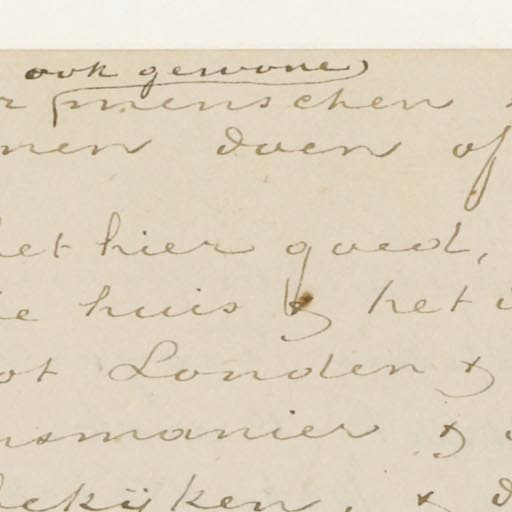 ook gewone
r menschen
men doen of
het hier goed,
ie huis & het i
ot Londen &
nsmanier &
bekijken, & d